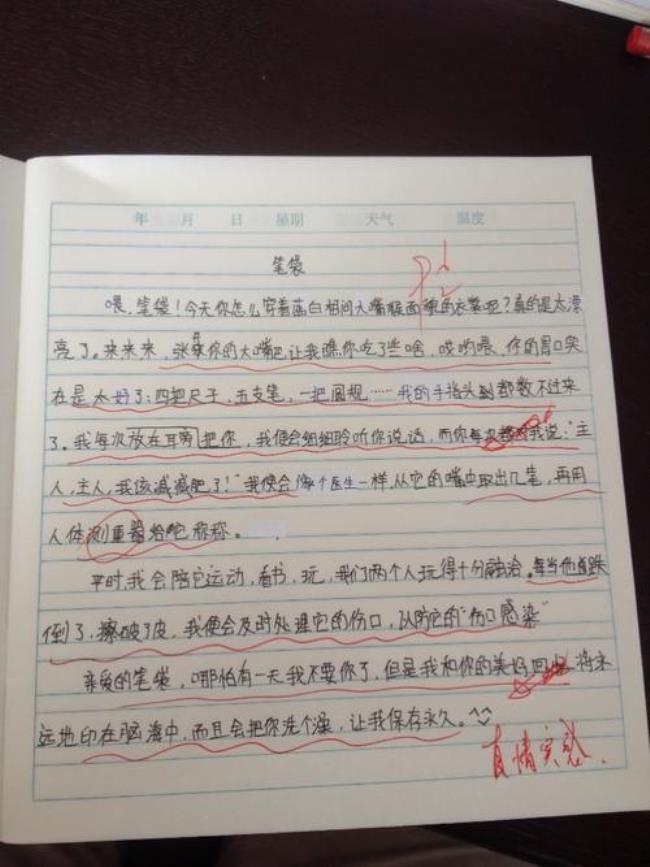 年 月 日 星期 天气 温度
笔袋
喂,笔袋!今天你怎么穿着蓝白相间大嘴猴面的衣裳吧?真的是太漂
亮了。来来来,张开你的大嘴巴让我瞧你吃了些啥,哎哟喂,你的胃口实
在是太好了:四把尺子,五支笔,一把圆规……我的手指头到都数不过来
了。我每次放在耳旁把你,我便会细细聆听你说话,而你每次都对我说:“主
人,主人,我该减减肥了!”我便会像个医生一样,从它的嘴中取出几笔,再用
人体测重器给它称称。
平时,我会陪它运动,看书,玩,我们两个人玩得十分融洽。每当他
倒了,擦破了皮,我便会及时处理它的伤口,以防它的“伤口感染”
亲爱的笔袋,哪怕有一天我不要你了,但是我和你的美好回忆将永
远地印在脑海中,而且会把你洗个澡,让我保存永久。^^
真情实感.